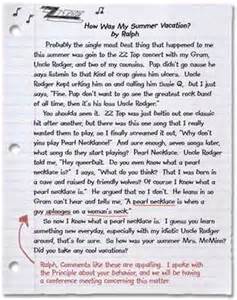 ZZ
How Was My Summer Vacation?
by Ralph
Probably the single most best thing that happened to me
this summer was goin to the ZZ Top concert with my Gram,
Uncle Rodger, and two of my cousins. Pap didn't go cause he
says listenin to that kind of crap gives him ulcers. Uncle
Rodger kept urking him on and calling him Susie Q, but I just
says, "Fine. Pap don't want to go see the greatest rock band
of all time, then it's his loss Uncle Rodger."
You shoulda seen it. ZZ Top was just beltin out one
classic hit after another, but there was this one song that I really
wanted them to play, so I finally screamed it out, "Why don't
you play Pearl Necklace!" And sure enough, seven songs later,
what song do they start playing? Pearl Necklace. Uncle Rodger
told me, "Hey queerbait. Do you even know what a pearl
necklace is?" I says, "What do you think? That I was born in
a cave and raised by friendly wolves? Of course I know what
a pearl necklace is." He argued that no I don't. He leans in as
Gram can't hear and tells me, "A pearl necklace is when a
guy splooges on a woman's neck."
So now I know what a pearl necklace is. I guess you learn
something new everyday, especially with my idiotic Uncle Rodger
around, that's for sure. So how was your summer Mrs. McWinn?
Did you take any cool vacations?
Ralph, Comments like these are appalling. I spoke with
the Principle about your behavior, and we will be having a
conference meeting concerning this matter.